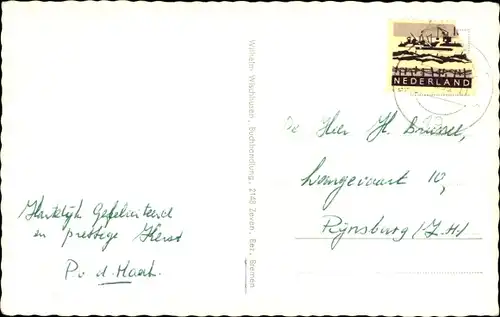 NEDERLAND
De Heer H. Brussel,
10,
Rijnsburg (Z.H)
Hartelijk Gefeliciteerd
en prettige Kerst
P. v. d. Maat.
Wilhelm Wischhusen, Buchhandlung, 2148 Zeven, Bez. Bremen